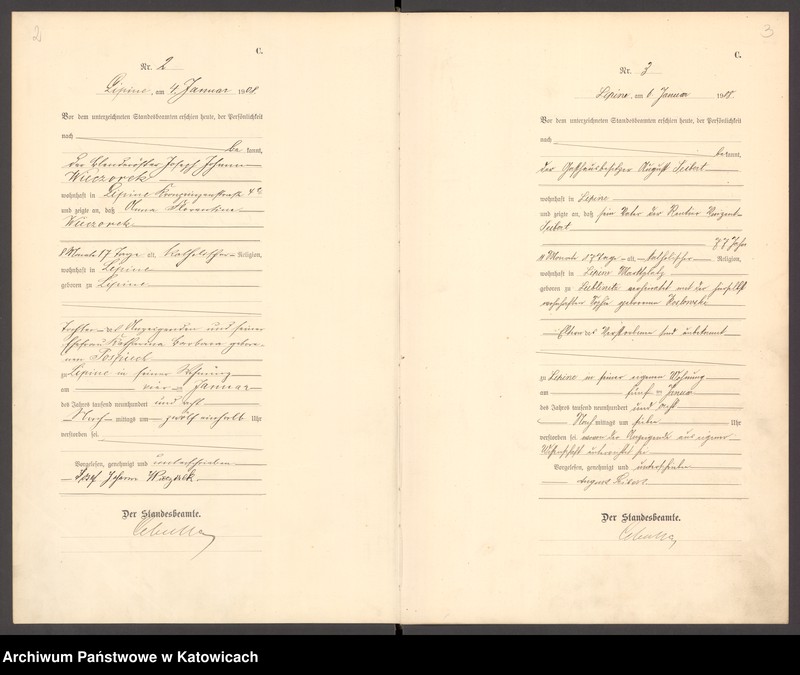 2
C.
Nr. 2
Lipine, am 4. Januar 1908.
Vor dem unterzeichneten Standesbeamten erschien heute, der Persönlichkeit
nach
be kannt,
der Joseph Johann
Wieczorek
wohnhaft in Lipine
und zeigte an, daß Anna Florentine
Wieczorek
8 Monate 17 Tage alt, katholischer Religion,
wohnhaft in Lipine
geboren zu Lipine
Tochter des Anzeigenden und seiner
Ehefrau Katharina Barbara gebore-
nen
zu Lipine in seiner Wohnung
am vier ten Januar
des Jahres tausend neunhundert und acht
Nach mittags um zwölf einhalb Uhr
verstorben sei.
Vorgelesen, genehmigt und unterschrieben
Josef Johann Wieczorek
Der Standesbeamte.
Cebulla
3
C.
Nr. 3
Lipine, am 6. Januar 1908.
Vor dem unterzeichneten Standesbeamten erschien heute, der Persönlichkeit
nach
be kannt,
der Gasthausbesitzer August Seibert
wohnhaft in Lipine
und zeigte an, daß sein Vater der Rentier
Seibert
77 Jahre
11 Monate Tage alt, katholischer Religion,
wohnhaft in Lipine Marktplatz
geboren zu Lublinitz verheiratet mit der
Sophie geborenen
Eltern des Verstorbenen sind unbekannt
zu Lipine in seiner eigenen Wohnung
am fünf ten Januar
des Jahres tausend neunhundert und acht
Nach mittags um sieben Uhr
verstorben sei wovon der Anzeigende aus eigener
Wissenschaft unterrichtet sei
Vorgelesen, genehmigt und unterschrieben
August Seibert
Der Standesbeamte.
Cebulla
Archiwum Państwowe w Katowicach